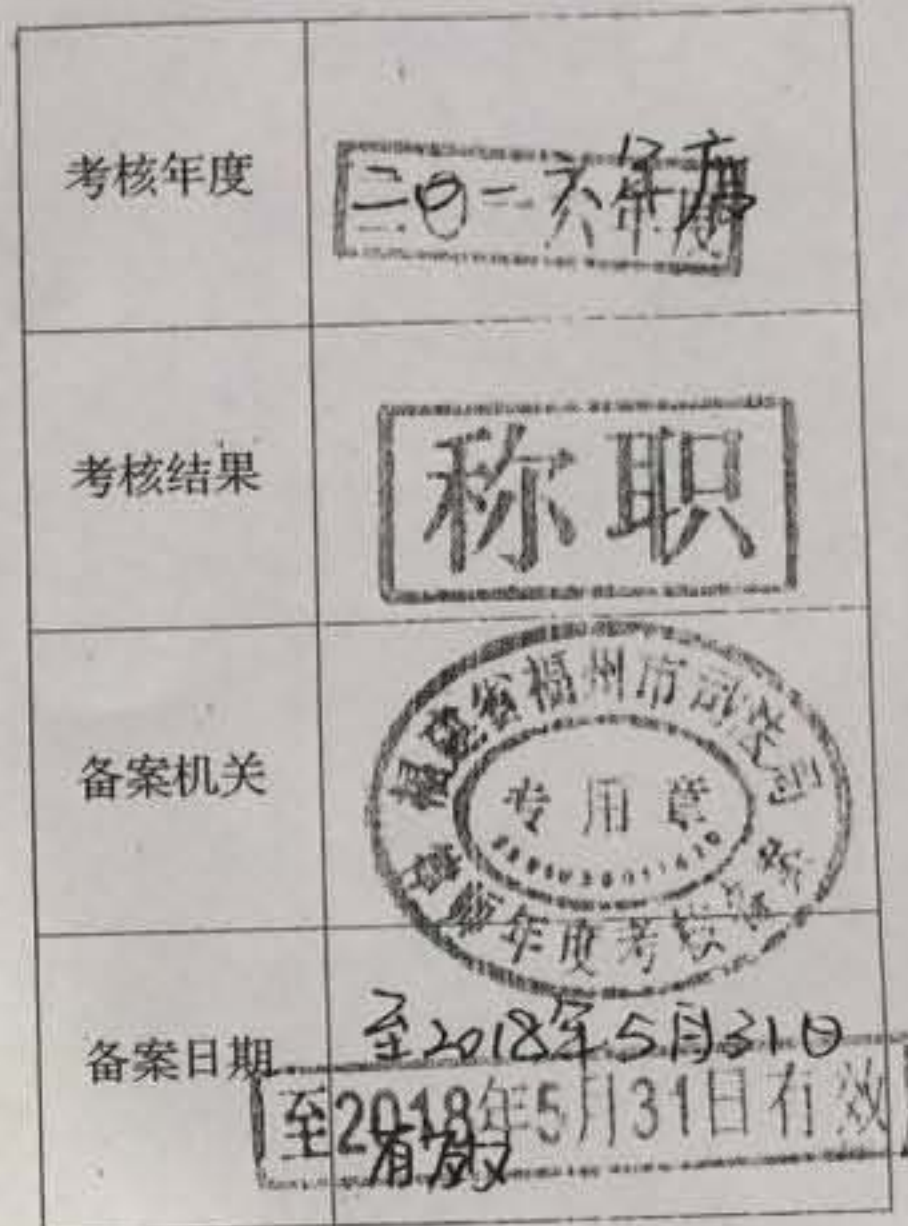 考核年度
二〇一六年度
二〇一六年度
考核结果
称职
备案机关
福建省福州市司法局
专用章
律师年度考核备案
备案日期
至2018年5月31日
有效
至2018年5月31日有效